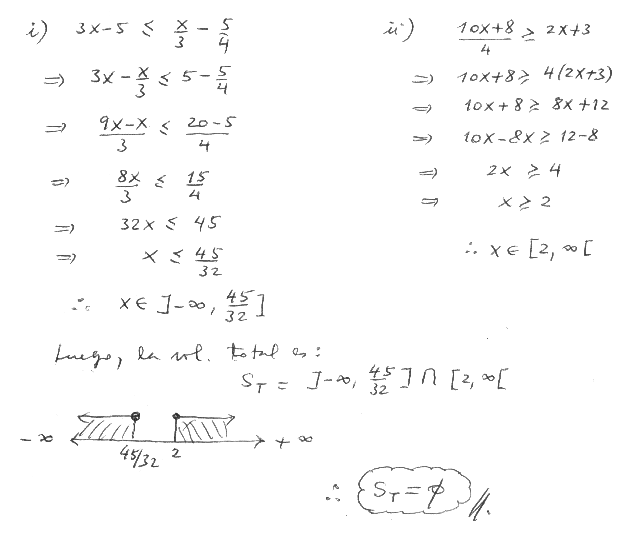 i) 3x-5 ≤ x/3 - 5/4
⇒ 3x - x/3 ≤ 5 - 5/4
⇒ (9x-x)/3 ≤ (20-5)/4
⇒ 8x/3 ≤ 15/4
⇒ 32x ≤ 45
⇒ x ≤ 45/32
∴ x ∈ ]-∞, 45/32]
ii) (10x+8)/4 ≥ 2x+3
⇒ 10x+8 ≥ 4(2x+3)
⇒ 10x+8 ≥ 8x+12
⇒ 10x-8x ≥ 12-8
⇒ 2x ≥ 4
⇒ x ≥ 2
∴ x ∈ [2, ∞[
Luego, la sol. total es:
S_T = ]-∞, 45/32] ∩ [2, ∞[
-∞ 45/32 2 +∞
∴ S_T = ϕ //.